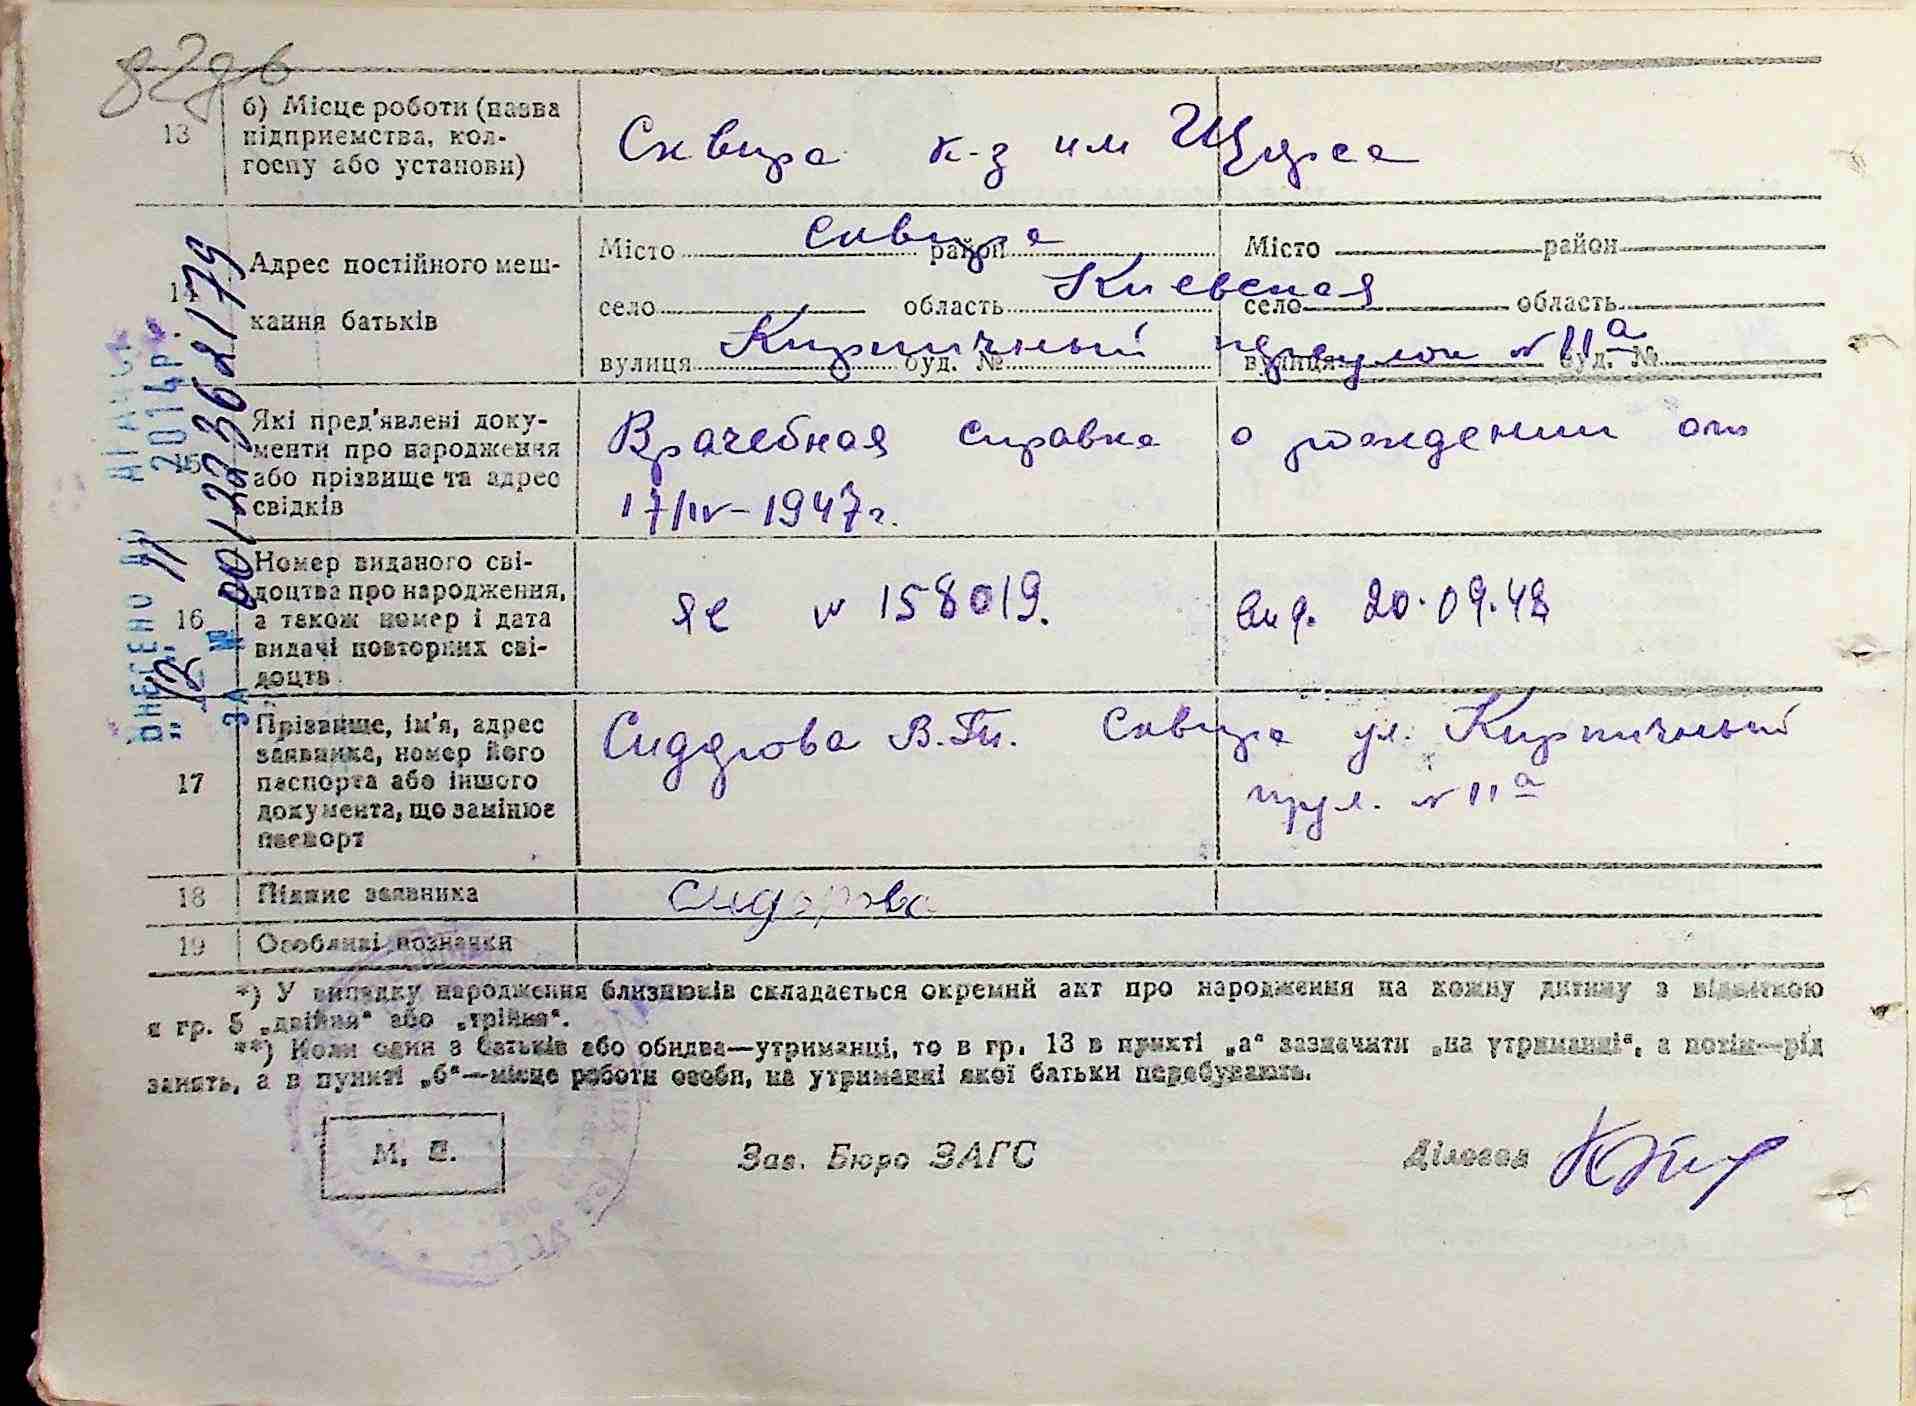 13
б) Місце роботи (назва
підприємства, кол-
госпу або установи)
Сквира к-з им Щорса
14
Адрес постійного меш-
кання батьків
Місто Сквира район
Місто район
село область Киевская
село область
вулиця Кирпичный буд. №
вулиця переулок № 11а буд. №
15
Які пред'явлені доку-
менти про народження
або прізвище та адрес
свідків
Врачебная справка о рождении от
17/IV-1947г.
16
Номер виданого сві-
доцтва про народження,
а також номер і дата
видачі повторних сві-
доцтв
ЯЕ № 158019.
20.09.48
17
Прізвище, ім'я, адрес
заявника, номер його
паспорта або іншого
документа, що замінює
паспорт
Сидорова В. Сквира ул. Кирпичный
№ 11а
18
Підпис заявника
Сидорова
19
Особливі позначки
*) У випадку народження близнюків складається окремий акт про народження на кожну дитину з відміткою
в гр. 5 „двійня“ або „трійня“.
**) Коли один з батьків або обидва—утриманці, то в гр. 13 в пункті „а“ зазначити „на утриманні“, а потім—рід
занять, а в пункті „б“—місце роботи особи, на утриманні якої батьки перебувають.
М. П.
Зав. Бюро ЗАГС
Діловод
ВНЕСЕНО ДО ДРАЦСГ
„12“ 11 2014р.
ЗА № 00122362179